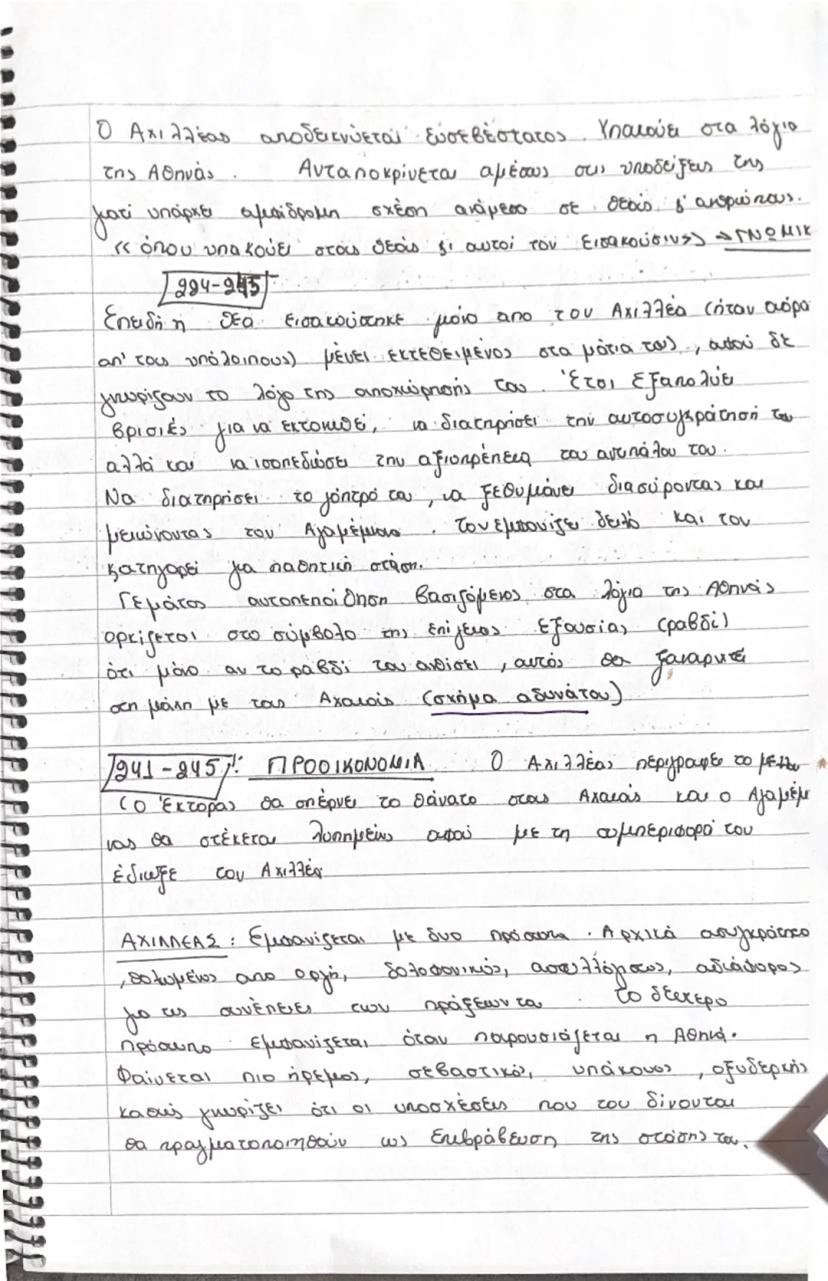 Ο Αχιλλέας αποδεικνύεται ευσεβέστατος. Υπακούει στα λόγια
της Αθηνάς. Ανταποκρίνεται αμέσως στις υποδείξεις της
γιατί υπάρχει αμφίδρομη σχέση ανάμεσα σε θεούς κ' ανθρώπους.
<< όπου υπακούει στους θεούς κι αυτοί τον εισακούσιν>> → ΓΝΩΜΙΚ
224-245
Επειδή η θεά εισακούστηκε μόνο απο τον Αχιλλέα (ήταν αόρα
απ' τους υπόλοιπους) μένει εκτεθειμένος στα μάτια τους, αφού δε
γνωρίζουν το λόγο της αποχώρησής του. Έτσι εξαπολύει
βρισιές για να εκτονωθεί, να διατηρήσει την αυτοσυγκράτησή του
αλλά και να ισοπεδώσει την αξιοπρέπεια του αντιπάλου του.
Να διατηρήσει το γόητρό του, να ξεθυμάνει διασύροντας και
μειώνοντας τον Αγαμέμνονα. Τον εμφανίζει δειλό και τον
κατηγορεί για παθητική στάση.
Γεμάτος αυτοπεποίθηση βασιζόμενος στα λόγια της Αθηνάς
ορκίζεται στο σύμβολο της επίγειας εξουσίας (ραβδί)
ότι μόνο αν το ραβδί του ανθίσει, αυτός θα ξαναρθεί
στη μάχη με τους Αχαιούς (σχήμα αδυνάτου)
241-245: ΠΡΟΟΙΚΟΝΟΜΙΑ Ο Αχιλλέας περιγραφει το μελλ
(Ο Έκτορας θα σπέρνει το θάνατο στους Αχαιούς και ο Αγαμέμ
νας θα στέκεται λυπημένος αφού με τη συμπεριφορά του
έδιωξε τον Αχιλλέα
ΑΧΙΛΛΕΑΣ: Εμφανίζεται με δυο πρόσωπα. Αρχικά ασυγκράτητο
, θολωμένος απο οργή, δολοφονικός, ασυλλόγιστος, αδιάφορος
για τις συνέπειες των πράξεων του. Το δεύτερο
πρόσωπο εμφανίζεται όταν παρουσιάζεται η Αθηνά.
Φαίνεται πιο ήρεμος, σεβαστικός, υπάκουος, οξυδερκής
καθώς γνωρίζει ότι οι υποσχέσεις που του δίνονται
θα πραγματοποιηθούν ως επιβράβευση της στάσης του.